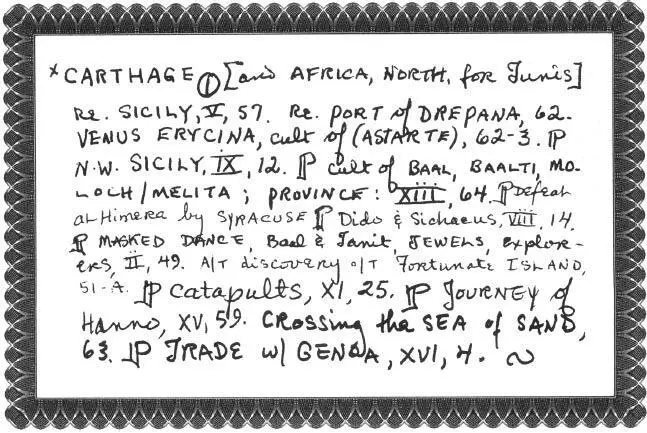 * CARTHAGE ① [and AFRICA, NORTH, for Tunis]
Re. SICILY, V, 57. Re. PORT of DREPANA, 62-
VENUS ERYCINA, cult of (ASTARTE), 62-3. ¶
N.W. SICILY, IX, 12. ¶ cult of BAAL, BAALTI, MO-
LOCH/MELITA; PROVINCE: XIII, 64. ¶ Defeat
at Himera by SYRACUSE ¶ Dido & Sichaeus, VIII, 14.
¶ MASKED DANCE, Baal & Tanit, JEWELS, explor-
ers, II, 49. A/T discovery o/T Fortunate ISLAND,
51-A. ¶ catapults, XI, 25. ¶ JOURNEY of
Hanno, XV, 59. CROSSING the SEA of SAND,
63. ¶ TRADE w/ GENOA, XVI, 4.